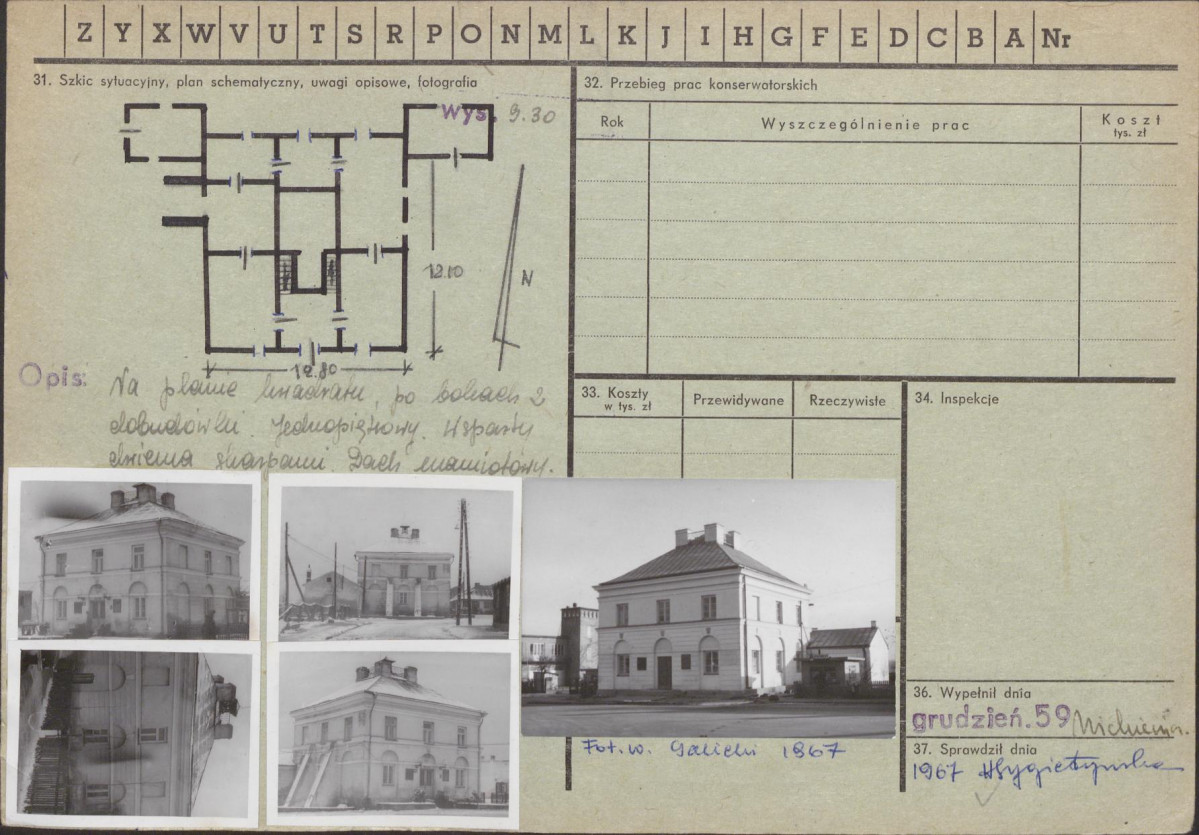 Z Y X W V U T S R P O N M L K J I H G F E D C B A Nr
31. Szkic sytuacyjny, plan schematyczny, uwagi opisowe, fotografia
Wys. 9.30
12.10
N
12.80
Opis: Na planie kwadratu, po bokach 2
dobudówki. Jednopiętrowy. Wsparty
dwiema skarpami. Dach namiotowy.
32. Przebieg prac konserwatorskich
Rok
Wyszczególnienie prac
Koszt
tys. zł
33. Koszty
w tys. zł
Przewidywane
Rzeczywiste
34. Inspekcje
Fot. W. Galicki 1967
36. Wypełnił dnia
grudzień. 59
37. Sprawdził dnia
1967